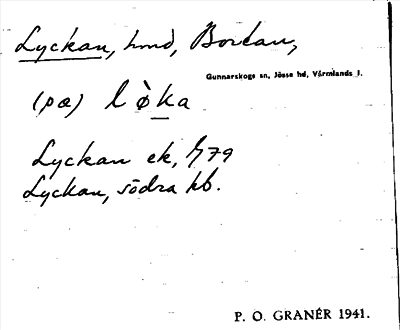 Lyckan, hmd, Bortan,
Gunnarskogs sn, Jösse hd, Värmlands l.
(pæ) l ò̱ka
Lyckan ek, 79
Lyckan, södra hb.
P. O. GRANÉR 1941.